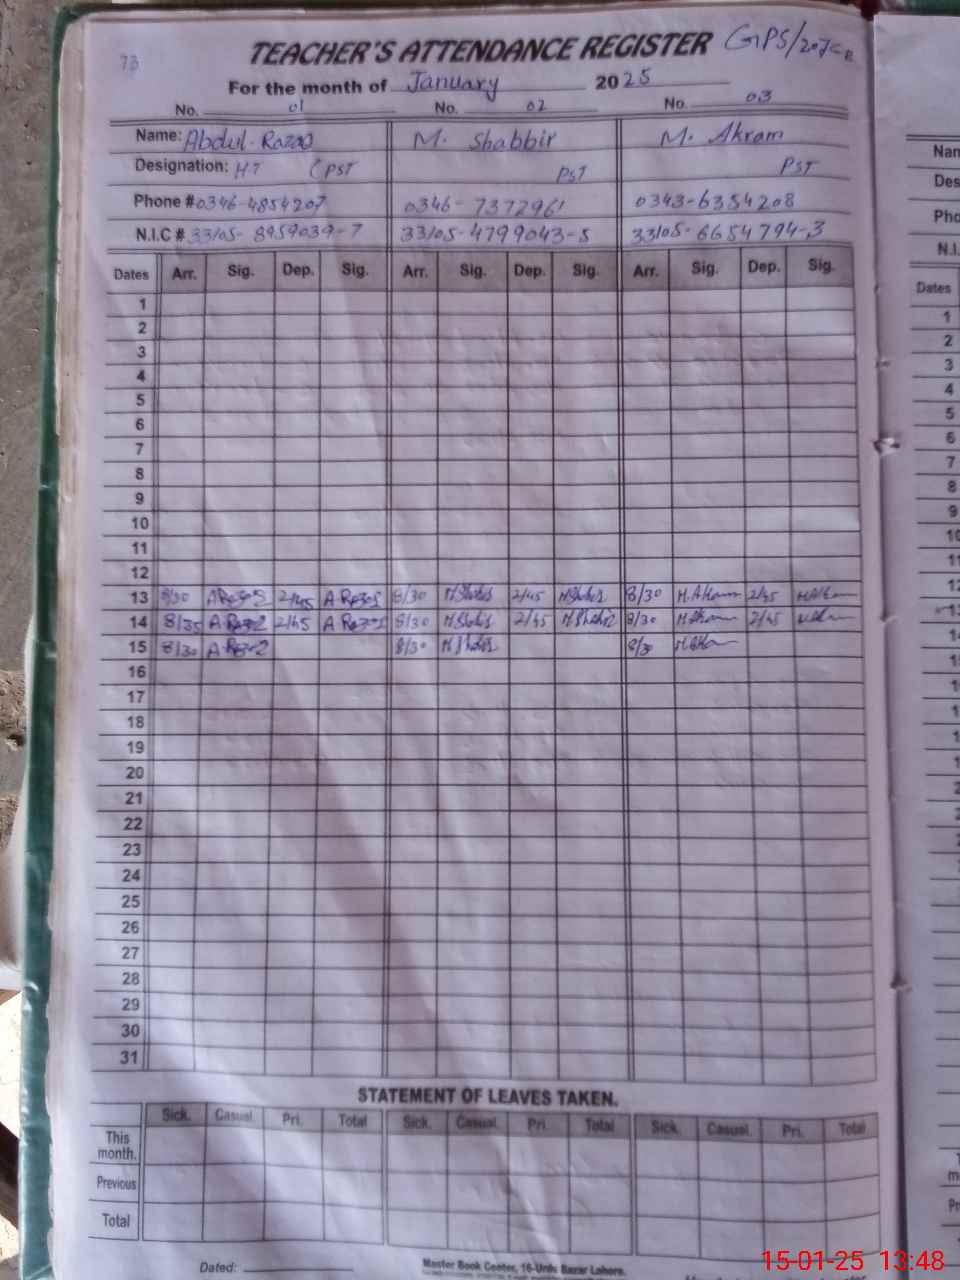 73
TEACHER'S ATTENDANCE REGISTER GPS/207
For the month of January 2025
No. 01 No. 02 No. 03
Name: Abdul Razaq M. Shabbir M. Akram
Designation: HT (PST PST PST
Phone # 0346-4854207 0346-7372961 0343-6354208
N.I.C # 33105-8959039-7 33105-4799043-5 33105-6654794-3
Dates Arr. Sig. Dep. Sig. Arr. Sig. Dep. Sig. Arr. Sig. Dep. Sig.
1
2
3
4
5
6
7
8
9
10
11
12
13 8/30 2/45 8/30 2/45 8/30 M.Akram 2/45
14 8/35 2/45 8/30 2/45 8/30 2/45
15 8/30 8/30 8/30
16
17
18
19
20
21
22
23
24
25
26
27
28
29
30
31
STATEMENT OF LEAVES TAKEN.
Sick. Casual. Pri. Total Sick. Casual. Pri. Total Sick. Casual. Pri. Total
This month.
Previous
Total
Dated:
Master Book Center, 16-Urdu Bazar Lahore.
Nan
Des
Pho
N.I.
Dates
1
2
3
4
5
6
7
8
9
10
11
12
13
15-01-25 13:48